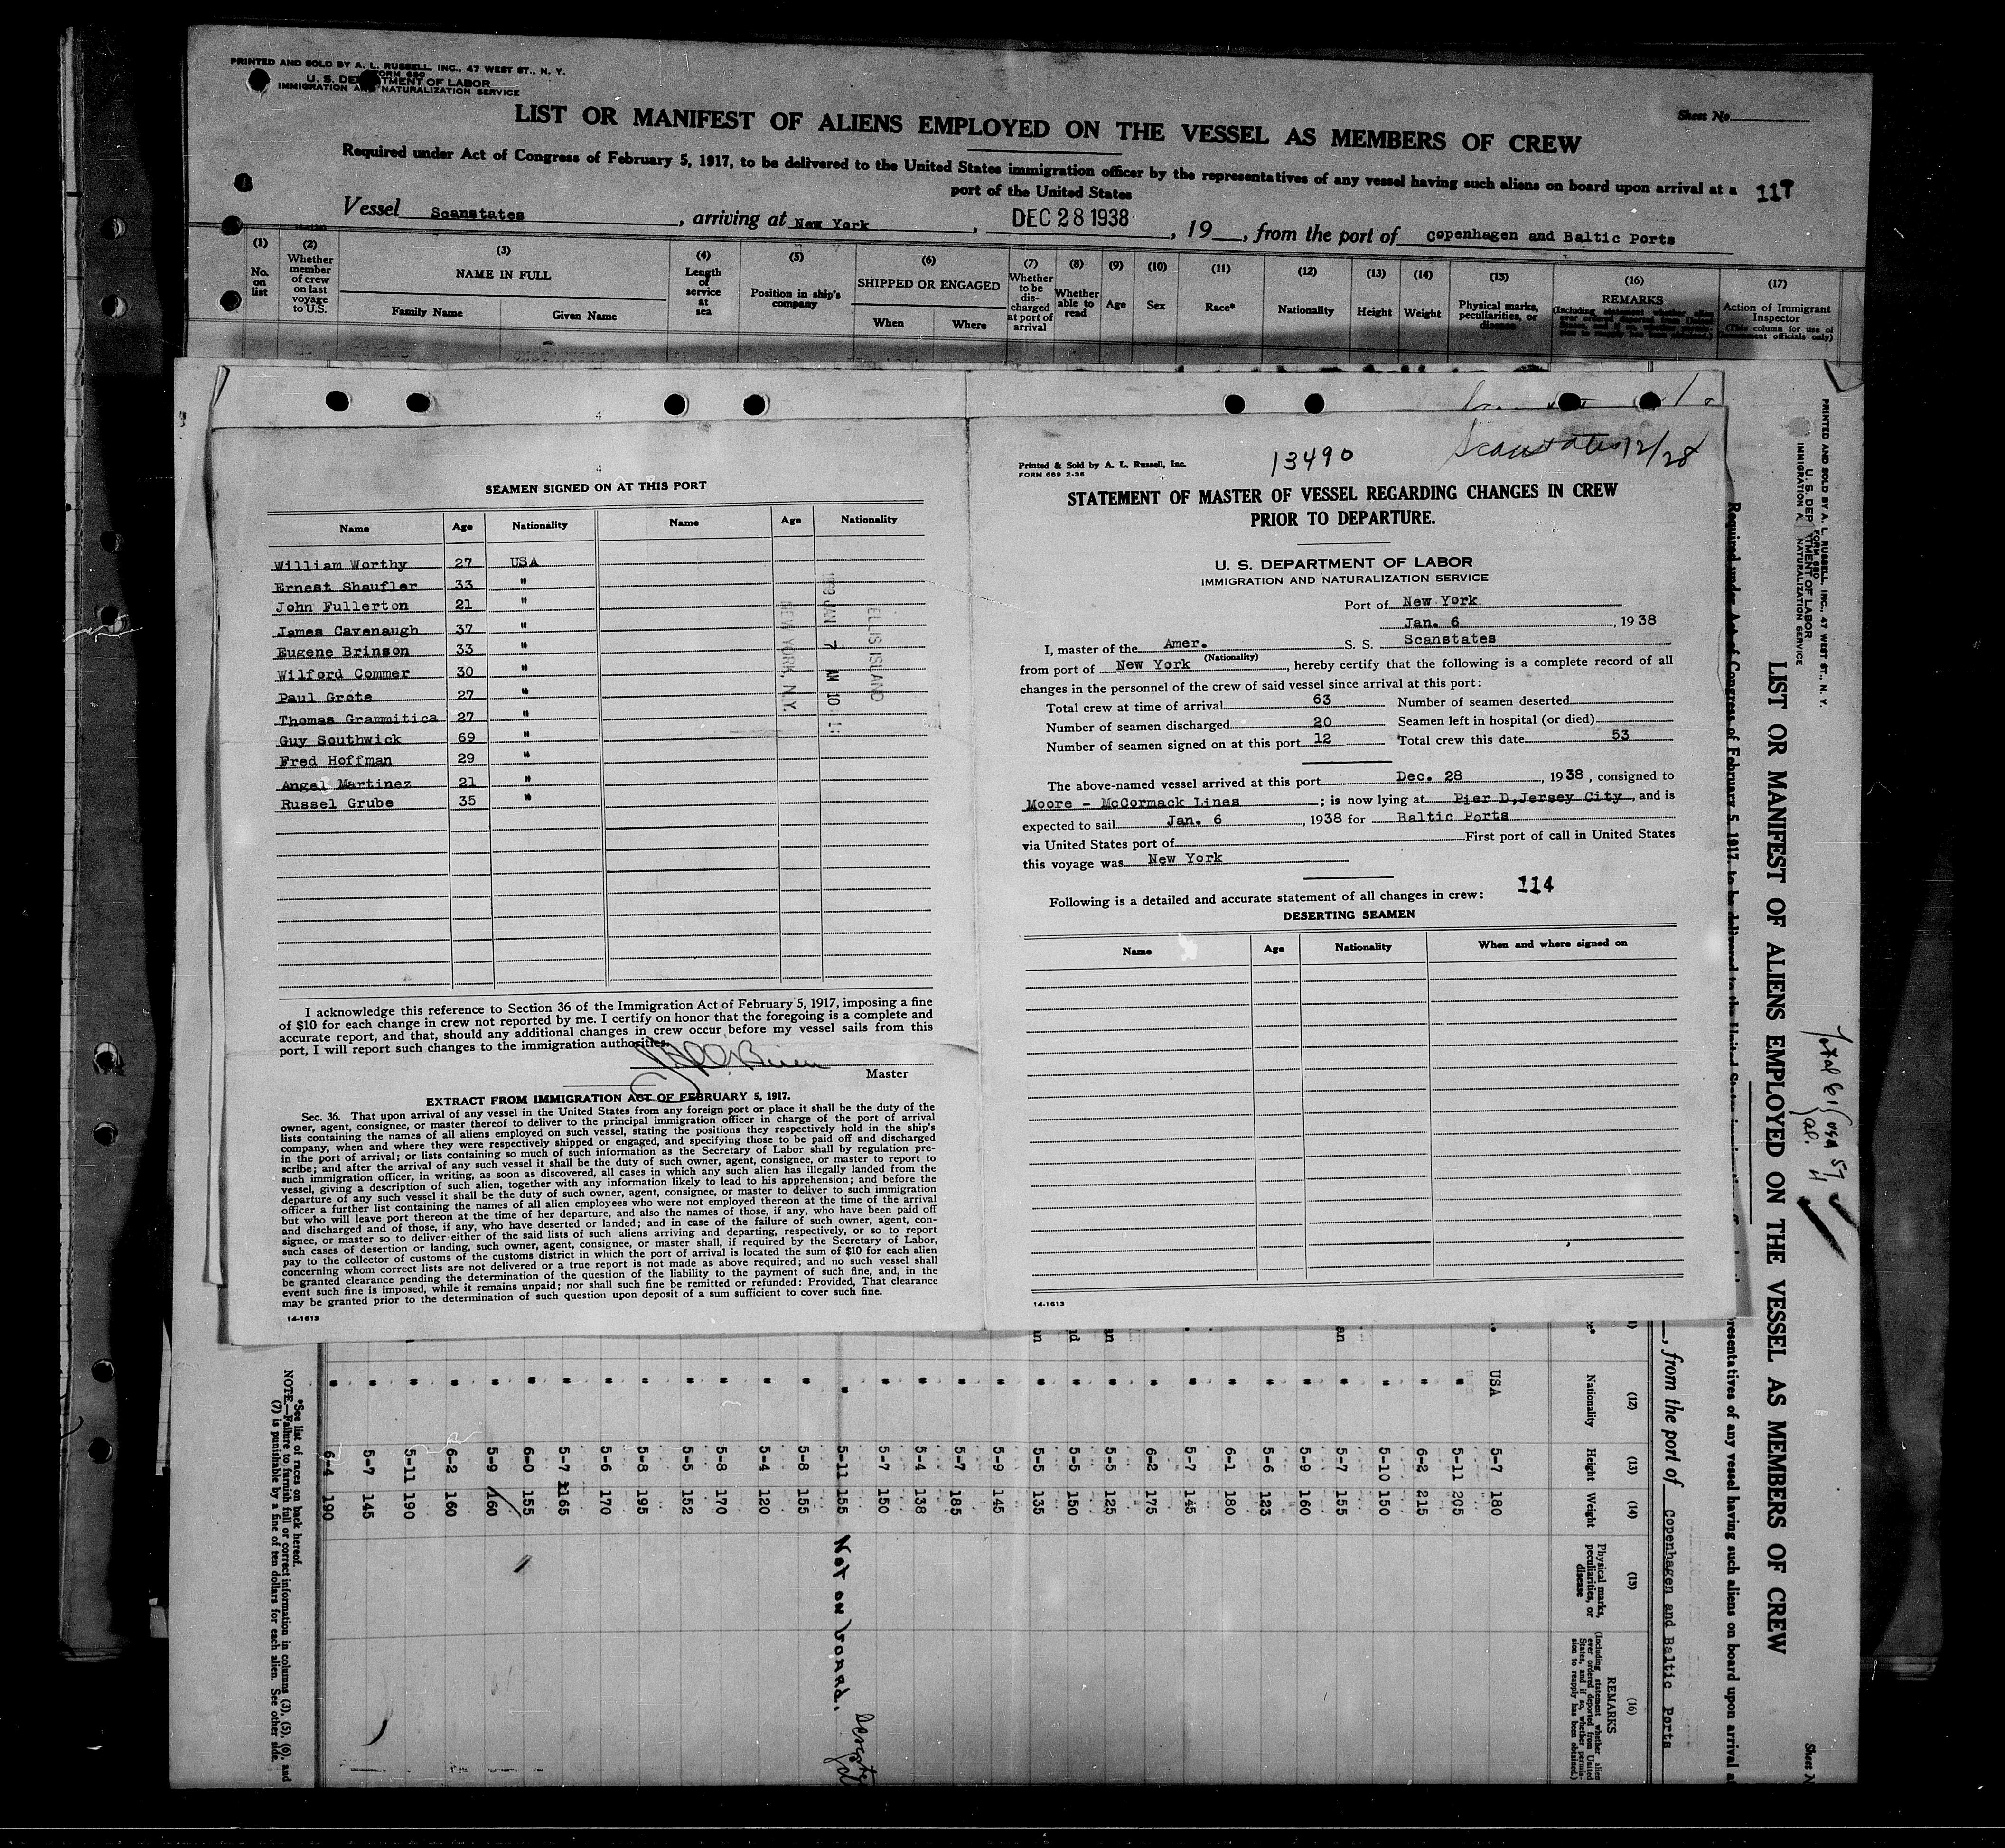 PRINTED AND SOLD BY A. L. RUSSELL, INC., 47 WEST ST., N. Y.
FORM 680
U. S. DEPARTMENT OF LABOR
IMMIGRATION AND NATURALIZATION SERVICE
Sheet No.
LIST OR MANIFEST OF ALIENS EMPLOYED ON THE VESSEL AS MEMBERS OF CREW
Required under Act of Congress of February 5, 1917, to be delivered to the United States immigration officer by the representatives of any vessel having such aliens on board upon arrival at a
port of the United States
117
Vessel Scanstates, arriving at New York, DEC 28 1938, 19, from the port of Copenhagen and Baltic Ports
(1) No. on list
(2) Whether member of crew on last voyage to U.S.
(3) NAME IN FULL
Family Name Given Name
(4) Length of service at sea
(5) Position in ship's company
(6) SHIPPED OR ENGAGED
When Where
(7) Whether to be discharged at port of arrival
(8) Whether able to read
(9) Age
(10) Sex
(11) Race*
(12) Nationality
(13) Height
(14) Weight
(15) Physical marks, peculiarities, or disease
(16) REMARKS
(17) Action of Immigrant Inspector
4
4
SEAMEN SIGNED ON AT THIS PORT
Name Age Nationality Name Age Nationality
William Worthy 27 USA
Ernest Shaufler 33 "
John Fullerton 21 "
James Cavenaugh 37 "
Eugene Brinson 33 "
Wilford Commer 30 "
Paul Grote 27 "
Thomas Grammitica 27 "
Guy Southwick 69 "
Fred Hoffman 29 "
Angel Martinez 21 "
Russel Grube 35 "
ELLIS ISLAND
JAN 7 AM 10
NEW YORK, N.Y.
I acknowledge this reference to Section 36 of the Immigration Act of February 5, 1917, imposing a fine
of $10 for each change in crew not reported by me. I certify on honor that the foregoing is a complete and
accurate report, and that, should any additional changes in crew occur before my vessel sails from this
port, I will report such changes to the immigration authorities.
O'Brien
Master
EXTRACT FROM IMMIGRATION ACT OF FEBRUARY 5, 1917.
Sec. 36. That upon arrival of any vessel in the United States from any foreign port or place it shall be the duty of the
owner, agent, consignee, or master thereof to deliver to the principal immigration officer in charge of the port of arrival
lists containing the names of all aliens employed on such vessel, stating the positions they respectively hold in the ship's
company, when and where they were respectively shipped or engaged, and specifying those to be paid off and discharged
in the port of arrival; or lists containing so much of such information as the Secretary of Labor shall by regulation pre-
scribe; and after the arrival of any such vessel it shall be the duty of such owner, agent, consignee, or master to report to
such immigration officer, in writing, as soon as discovered, all cases in which any such alien has illegally landed from the
vessel, giving a description of such alien, together with any information likely to lead to his apprehension; and before the
departure of any such vessel it shall be the duty of such owner, agent, consignee, or master to deliver to such immigration
officer a further list containing the names of all alien employees who were not employed thereon at the time of the arrival
but who will leave port thereon at the time of her departure, and also the names of those, if any, who have been paid off
and discharged and of those, if any, who have deserted or landed; and in case of the failure of such owner, agent, con-
signee, or master so to deliver either of the said lists of such aliens arriving and departing, respectively, or so to report
such cases of desertion or landing, such owner, agent, consignee, or master shall, if required by the Secretary of Labor,
pay to the collector of customs of the customs district in which the port of arrival is located the sum of $10 for each alien
concerning whom correct lists are not delivered or a true report is not made as above required; and no such vessel shall
be granted clearance pending the determination of the question of the liability to the payment of such fine, and, in the
event such fine is imposed, while it remains unpaid; nor shall such fine be remitted or refunded: Provided, That clearance
may be granted prior to the determination of such question upon deposit of a sum sufficient to cover such fine.
14-1613
Printed & Sold by A. L. Russell, Inc.
FORM 689 2-36
13490
Scanstates 12/28
STATEMENT OF MASTER OF VESSEL REGARDING CHANGES IN CREW
PRIOR TO DEPARTURE.
U. S. DEPARTMENT OF LABOR
IMMIGRATION AND NATURALIZATION SERVICE
Port of New York.
Jan. 6, 1938
I, master of the Amer. S. S. Scanstates
(Nationality)
from port of New York, hereby certify that the following is a complete record of all
changes in the personnel of the crew of said vessel since arrival at this port:
Total crew at time of arrival 63 Number of seamen deserted
Number of seamen discharged 20 Seamen left in hospital (or died)
Number of seamen signed on at this port 12 Total crew this date 53
The above-named vessel arrived at this port Dec. 28, 1938, consigned to
Moore - McCormack Lines; is now lying at Pier D,Jersey City, and is
expected to sail Jan. 6, 1938 for Baltic Ports
via United States port of First port of call in United States
this voyage was New York
Following is a detailed and accurate statement of all changes in crew: 114
DESERTING SEAMEN
Name Age Nationality When and where signed on
14-1613
PRINTED AND SOLD BY A. L. RUSSELL, INC., 47 WEST ST., N. Y.
FORM 680
U. S. DEPARTMENT OF LABOR
IMMIGRATION A NATURALIZATION SERVICE
LIST OR MANIFEST OF ALIENS EMPLOYED ON THE VESSEL AS MEMBERS OF CREW
Total 61 USA 57
al. 4
Sheet N
, from the port of Copenhagen and Baltic Ports
(12) Nationality
(13) Height
(14) Weight
(15) Physical marks, peculiarities, or disease
(16) REMARKS
(Including statement whether alien ever ordered deported from United States, and if so, whether permission to reapply has been obtained.)
USA 5-7 180
" 5-11 205
" 6-2 215
" 5-10 150
" 5-7 155
" 5-9 160
" 5-6 123
" 6-1 180
" 5-7 145
" 6-2 175
" 5-5 125
" 5-5 150
" 5-5 135
" 5-9 145
" 5-7 185
" 5-4 138
" 5-7 150
" 5-11 155 Not on board.
" 5-8 155
" 5-4 120
" 5-8 170
" 5-5 152
" 5-8 195
" 5-6 170
" 5-7 165
" 6-0 155
" 5-9 160
" 6-2 160
" 5-11 190
" 5-7 145
" 6-4 190
*See list of races on back hereof.
NOTE.—Failure to furnish full or correct information in columns (3), (5), (6), and
(7) is punishable by a fine of ten dollars for each alien. See other side.